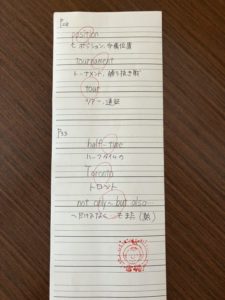 P28
position
ポジション、守備位置
tournament
トーナメント、勝ち抜き戦
tour
ツアー、遠征
P33
half-time
ハーフタイムの
Toronto
トロント
not only ~ but also
~だけでなく 〜もまた